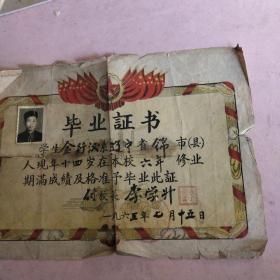 毕业証书
学生金 系辽宁省锦市(县)
人现年十四岁在本校六年修业
期满成績及格准予毕业此証
付校长 李学升
一九六五年七月十五日